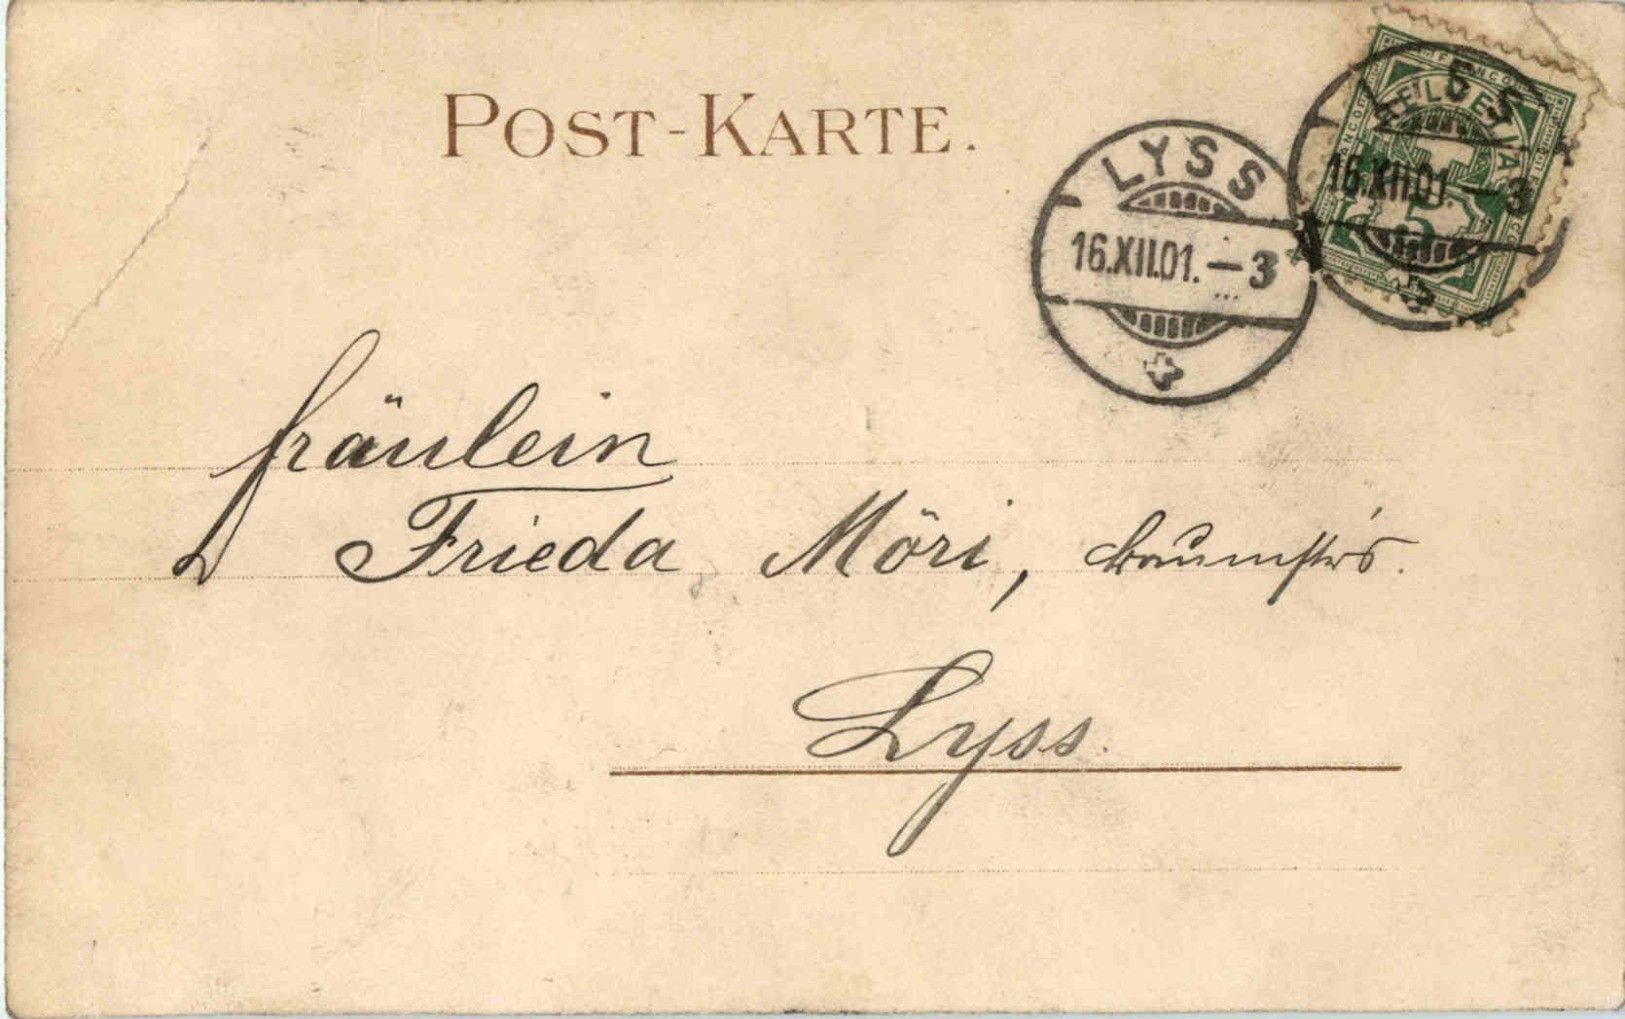 POST-KARTE.
LYSS
16.XII.01. – 3
LYSS
16.XII.01. – 3
FRANCO
HELVETIA
5
Fräulein
Frieda Möri, Baumstrs.
Lyss.